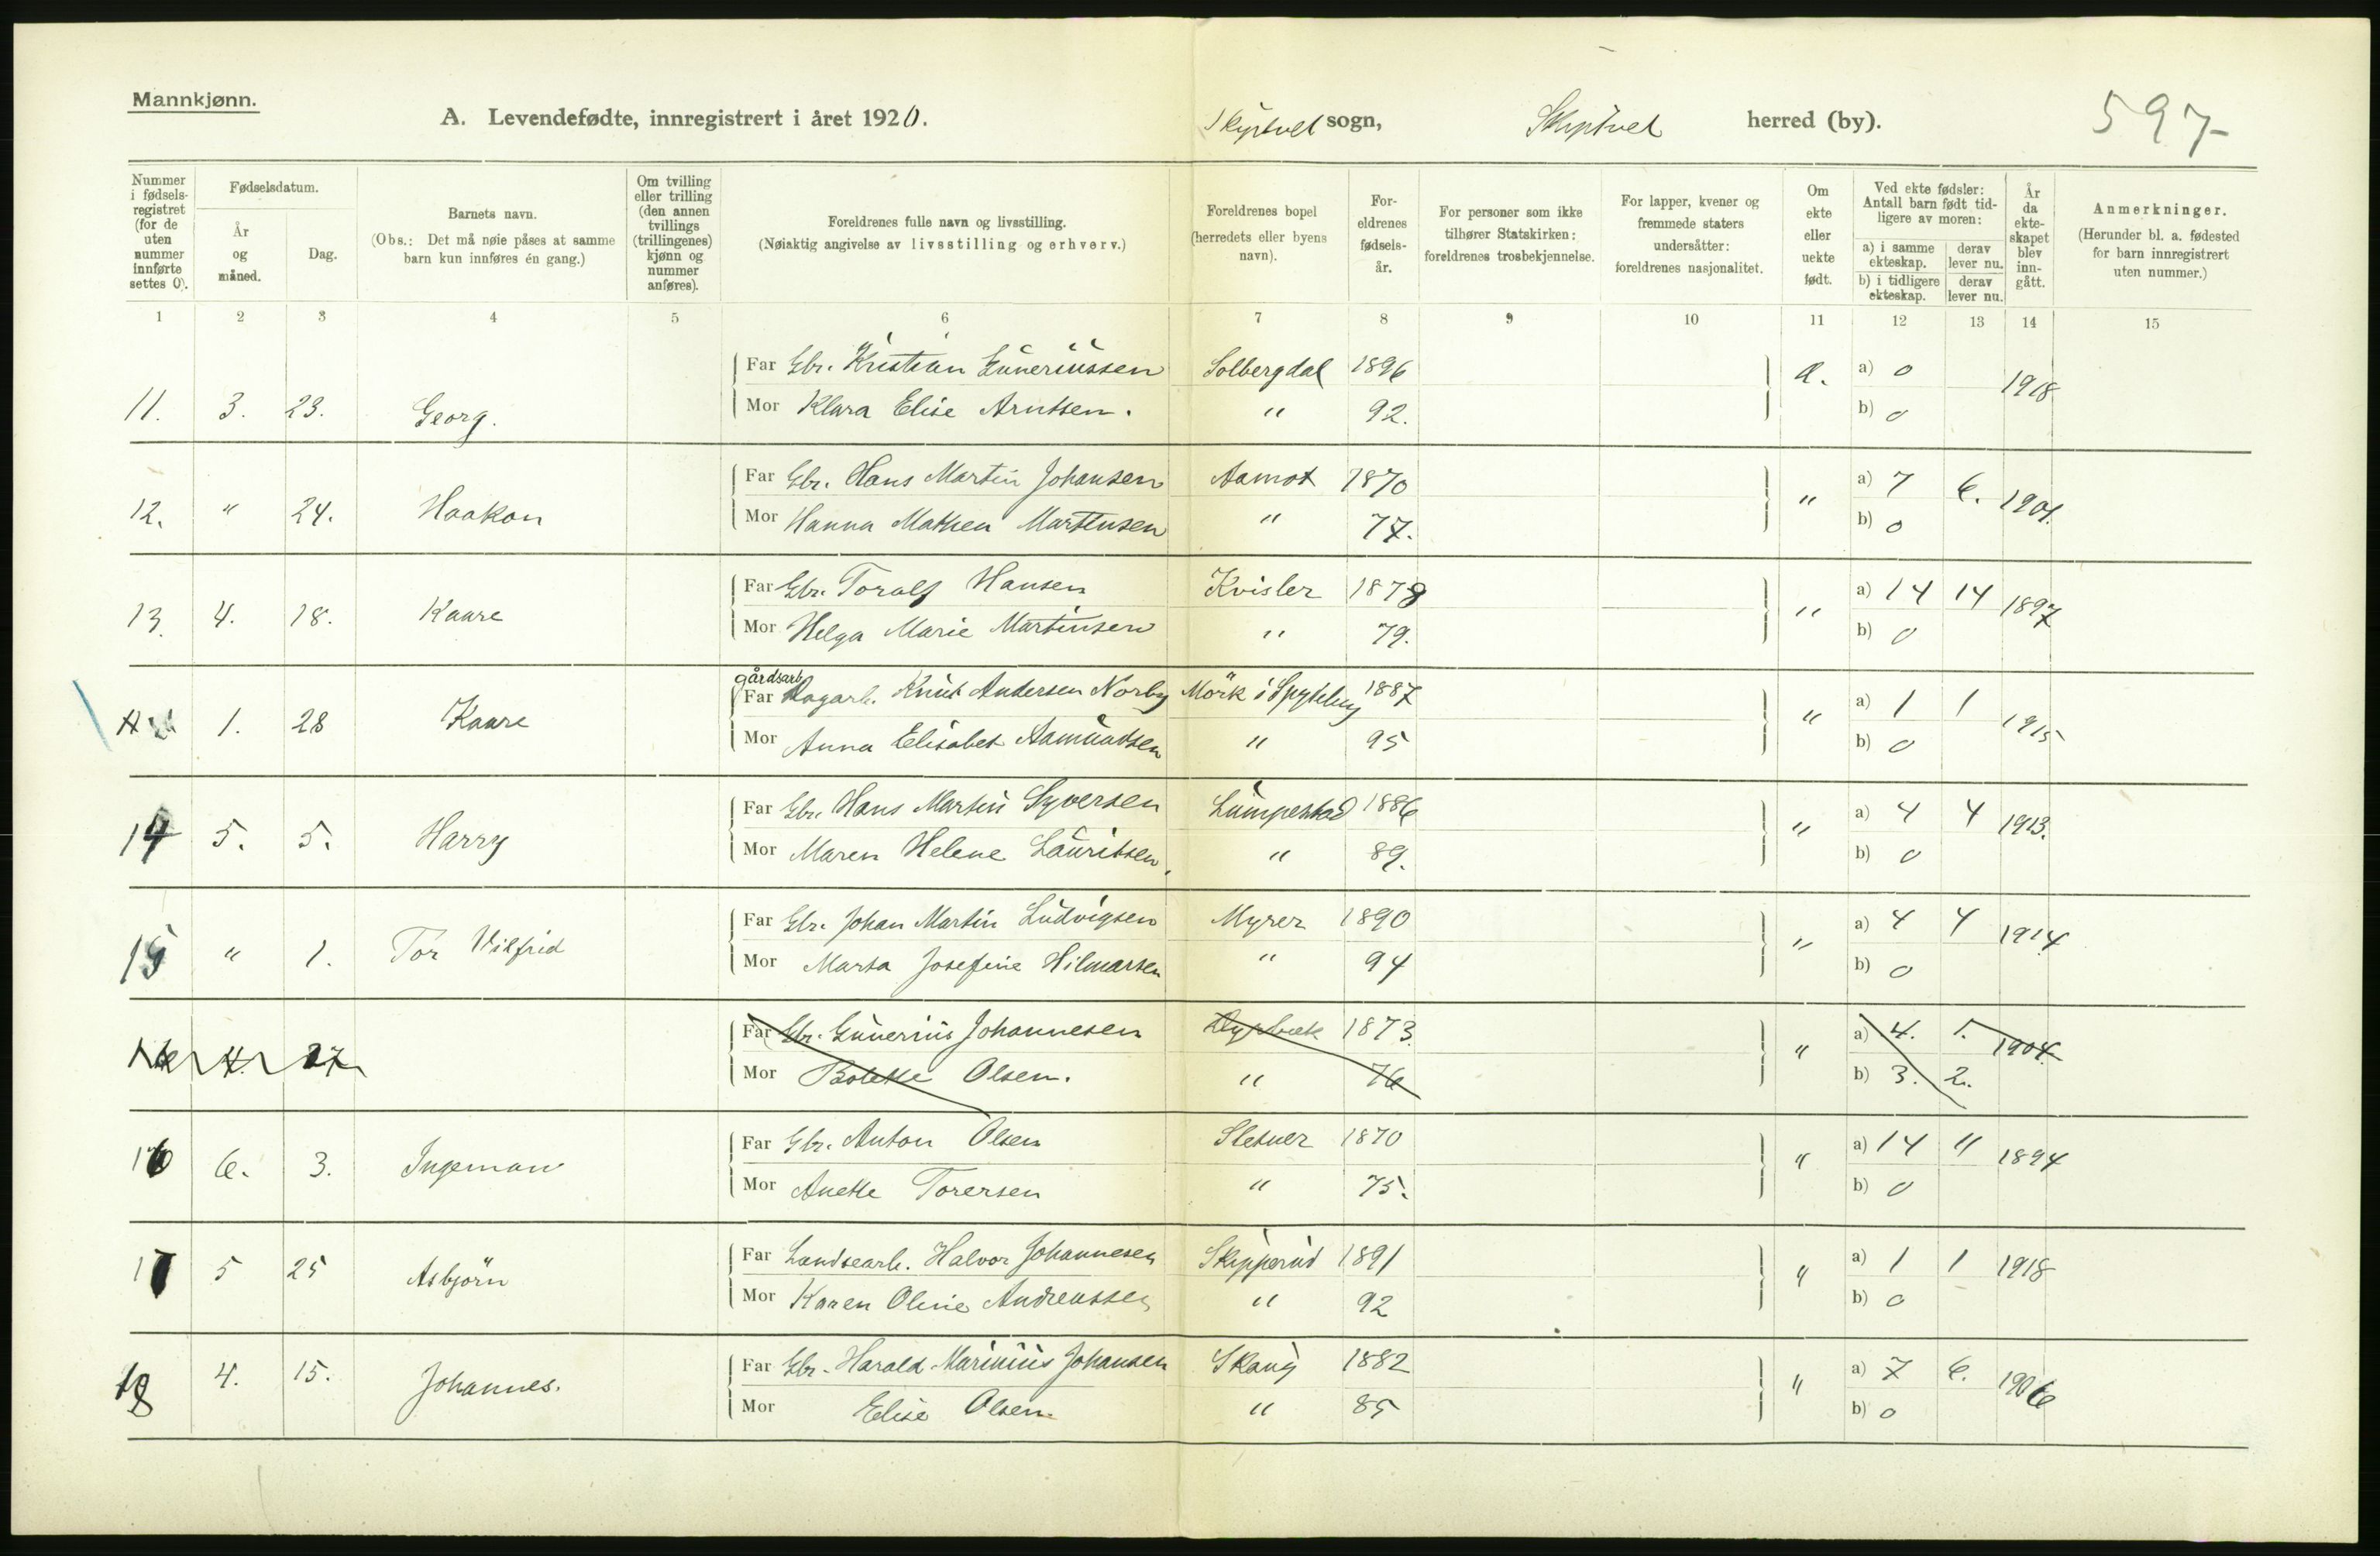 Mannkjønn.
A. Levendefødte, innregistrert i året 1920. Skiptvet sogn, Skiptvet herred (by). 597
Nummer i fødselsregistret (for de uten nummer innførte settes 0).
Fødselsdatum.
År og måned.
Dag.
Barnets navn.
(Obs.: Det må nøie påses at samme barn kun innføres én gang.)
Om tvilling eller trilling (den annen tvillings (trillingenes) kjønn og nummer anføres).
Foreldrenes fulle navn og livsstilling.
(Nøiaktig angivelse av livsstilling og erhverv.)
Foreldrenes bopel (herredets eller byens navn).
Foreldrenes fødselsår.
For personer som ikke tilhører Statskirken: foreldrenes trosbekjennelse.
For lapper, kvener og fremmede staters undersåtter: foreldrenes nasjonalitet.
Om ekte eller uekte født.
Ved ekte fødsler: Antall barn født tidligere av moren:
a) i samme ekteskap. derav lever nu.
b) i tidligere ekteskap. derav lever nu.
År da ekteskapet blev inngått.
Anmerkninger.
(Herunder bl. a. fødested for barn innregistrert uten nummer.)
1 2 3 4 5 6 7 8 9 10 11 12 13 14 15
Far Gbr. Kristian Guneriussen Solbergdal 1896 a) 0
11. 3. 23. Georg. Mor Klara Elise Arntsen. " 92. b) 0 1918
Far Gbr. Hans Martin Johansen Aamot 1870 a) 7 6.
12. " 24. Haakon Mor Hanna Mathea Martinsen " 77. " b) 0 1901.
Far Gbr. Toralf Hansen Kvisler 1878 a) 14 14
13. 4. 18. Kaare Mor Helga Marie Martinsen " 79. " b) 0 1897
gårdsarb.
Far Knut Andersen Norby Mörk i Spydeberg 1887 a) 1 1
1. 28 Kaare Mor Anna Elisabet Aamundsen " 95 " b) 0 1915
Far Gbr. Hans Martin Syversen Lumpestad 1886 a) 4 4
14 5. 5. Harry Mor Maren Helene Lauritsen. " 89. " b) 0 1913.
Far Gbr. Johan Martin Ludvigsen Myrer 1890 a) 4 4
15 " 1. Tor Vilfrid Mor Marta Josefine Hilmarsen " 94 " b) 0 1914
Far Gbr. Gunerius Johannesen 1873. a) 4. 1.
4. 27 Mor Bolette Olsen. " 76 " b) 3. 2. 1904.
Far Gbr. Anton Olsen Sletner 1870 a) 14 11
16 6. 3. Ingeman Mor Anette Torersen " 75. " b) 0 1894
Far Landsearb. Halvor Johannesen Skipperud 1891 a) 1 1
17 5 25 Asbjörn Mor Karen Oline Andreassen " 92 " b) 0 1918
Far Gbr. Harald Marinius Johansen Skaug 1882 a) 7 6.
18 4. 15. Johannes. Mor Elise Olsen. " 85 " b) 0 1906